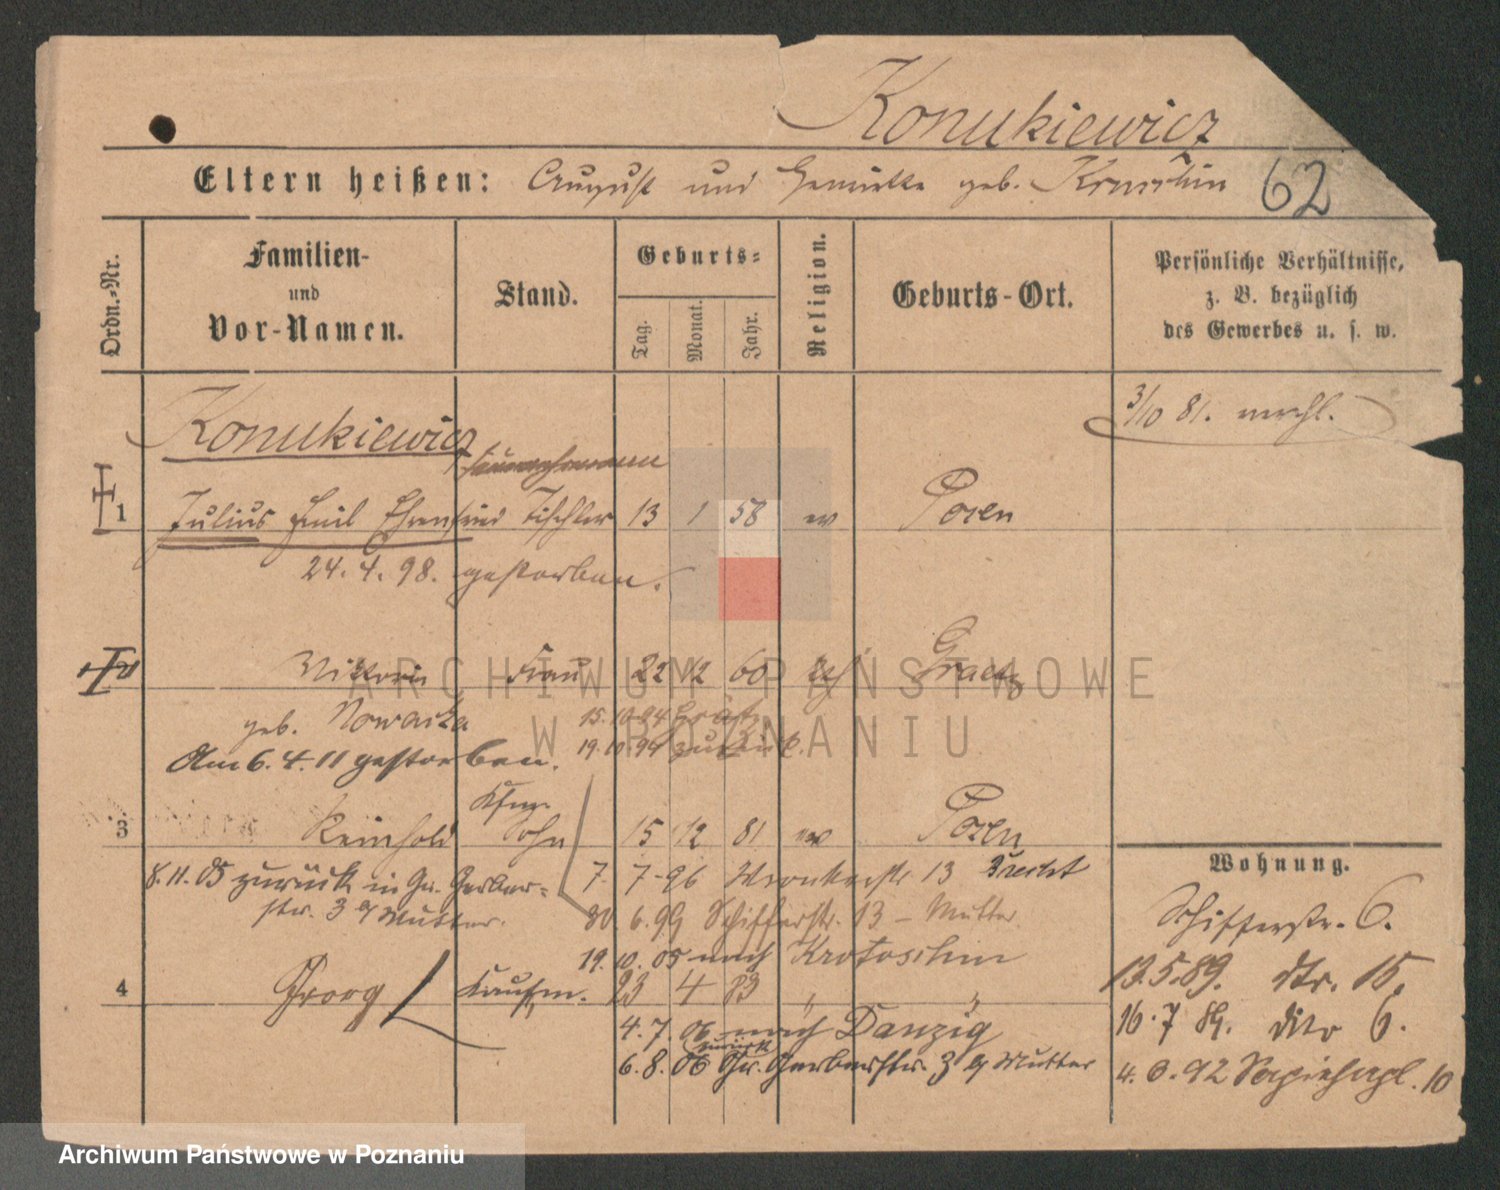 Konukiewicz
Eltern heißen: August und geb.
62
Ordn.-Nr.
Familien-
und
Vor-Namen.
Stand.
Geburts-
Tag.
Monat.
Jahr.
Religion.
Geburts-Ort.
Persönliche Verhältnisse,
z. B. bezüglich
des Gewerbes u. s. w.
3/10 81. verehl.
Konukiewicz
1 Julius Emil Ehrenfried Tischler 13 1 58 ev Posen
24.4.98. gestorben.
Viktoria Frau 22 12 60 Graetz
geb. Nowacka 15.10.94 Grätz
Am 6.4.11 gestorben. 19.10.94 zurück.
Kfm.
3 Reinhold Sohn 15 12 81 ev Posen
8.11.05 zurück in Gr. Gerber- 7. 7-96 Wronkerstr. 13
str. 3 a/Mutter. 30. 6.99 Schifferstr. 13 - Mutter
19. 10. 05 nach Krotoschin
4 Georg Kaufm. 23 4 83 " "
4. 7. 06 nach Danzig
zurück
6. 8. 06 Gr. Gerberstr. 3 a/Mutter
Wohnung.
Schifferstr. 6.
13.5.89. dto. 15.
16.7.89. dito 6.
92 Sapiehapl. 10
ARCHIWUM PAŃSTWOWE
W POZNANIU
Archiwum Państwowe w Poznaniu